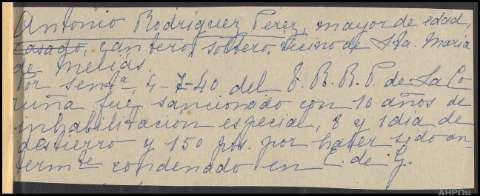 Antonio Rodriguez Perez, mayor de edad,
casado, cantero, soltero, vecino de Sta. Maria
de Melias.
Por semcª, 4-7-40 del T. R. R. P. de La Co
ruña fue sancionado con 10 años de
inhabilitación especial, 8 y 1 dia de
destierro y 150 pts. por haber sido an
termte condenado en C. de G.
AHPOu